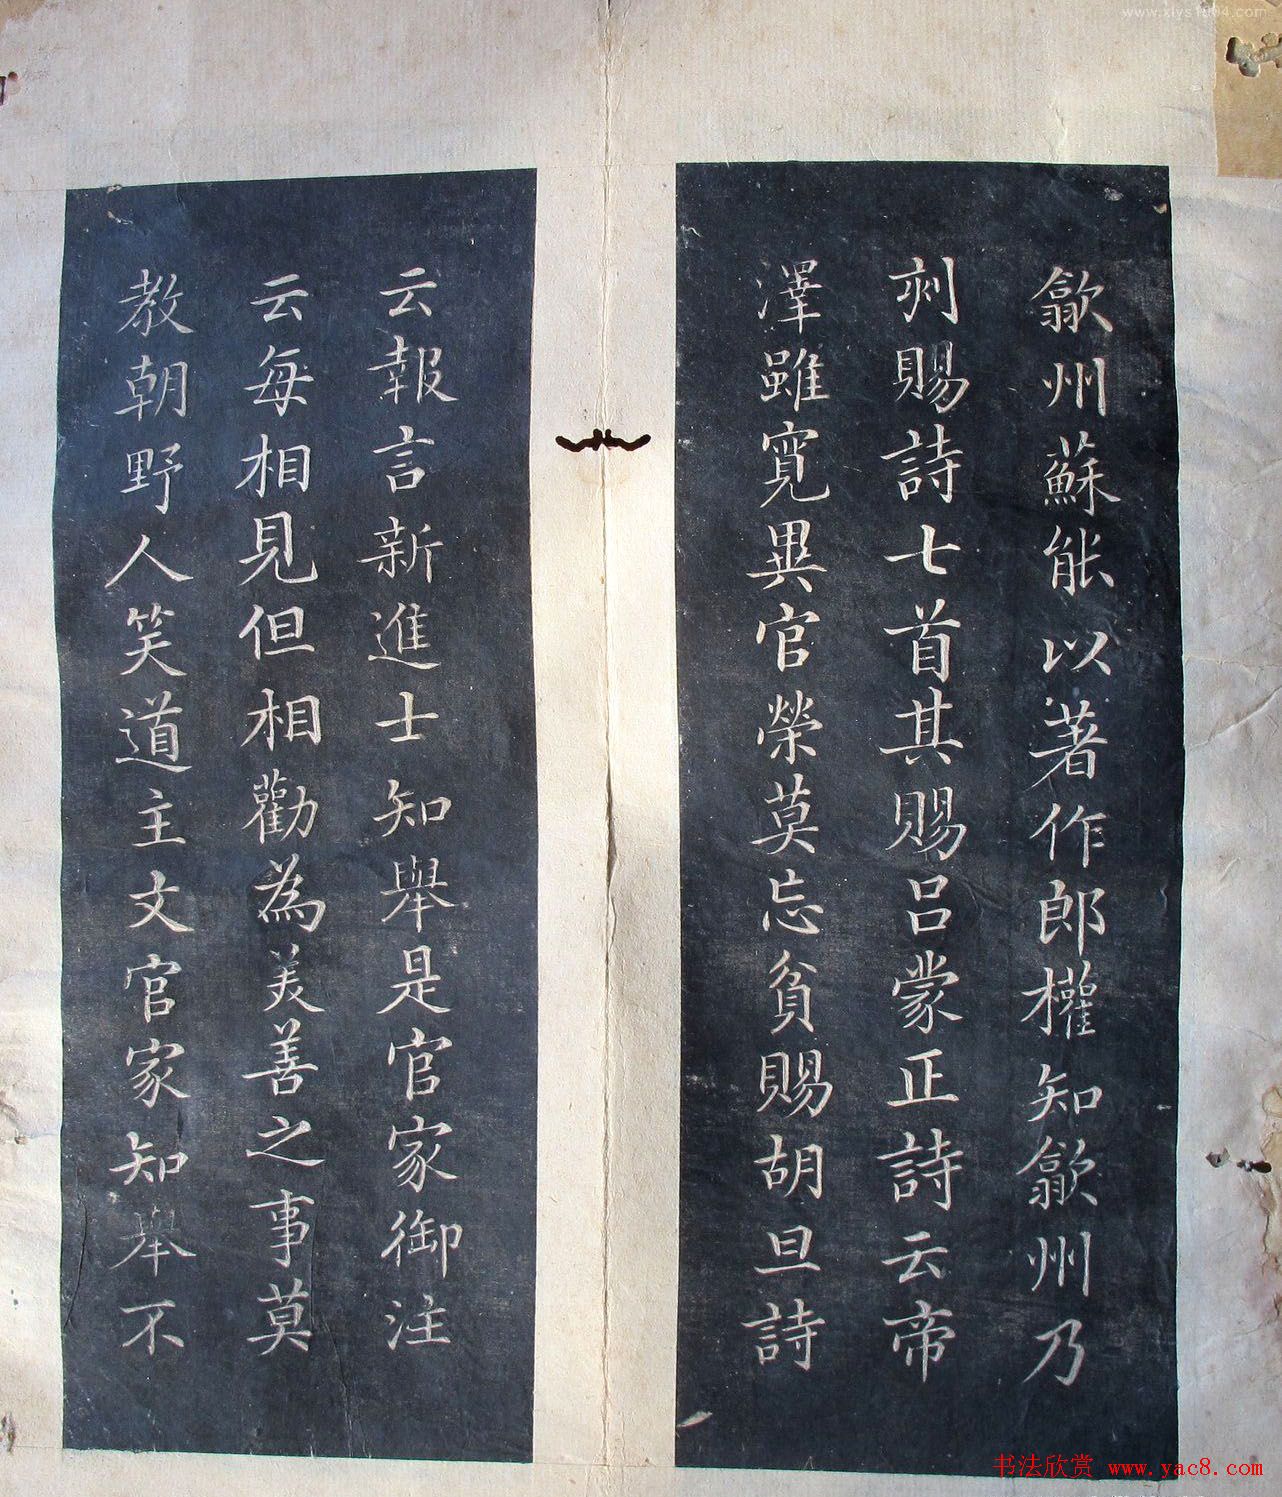 歙州蘇能以著作郎權知歙州乃
刺賜詩七首其賜呂蒙正詩云帝
澤雖寬異官榮莫忘貧賜胡旦詩
云報言新進士知舉是官家御注
云每相見但相勸為美善之事莫
教朝野人笑道主文官家知舉不
书法欣赏 www.yac8.com